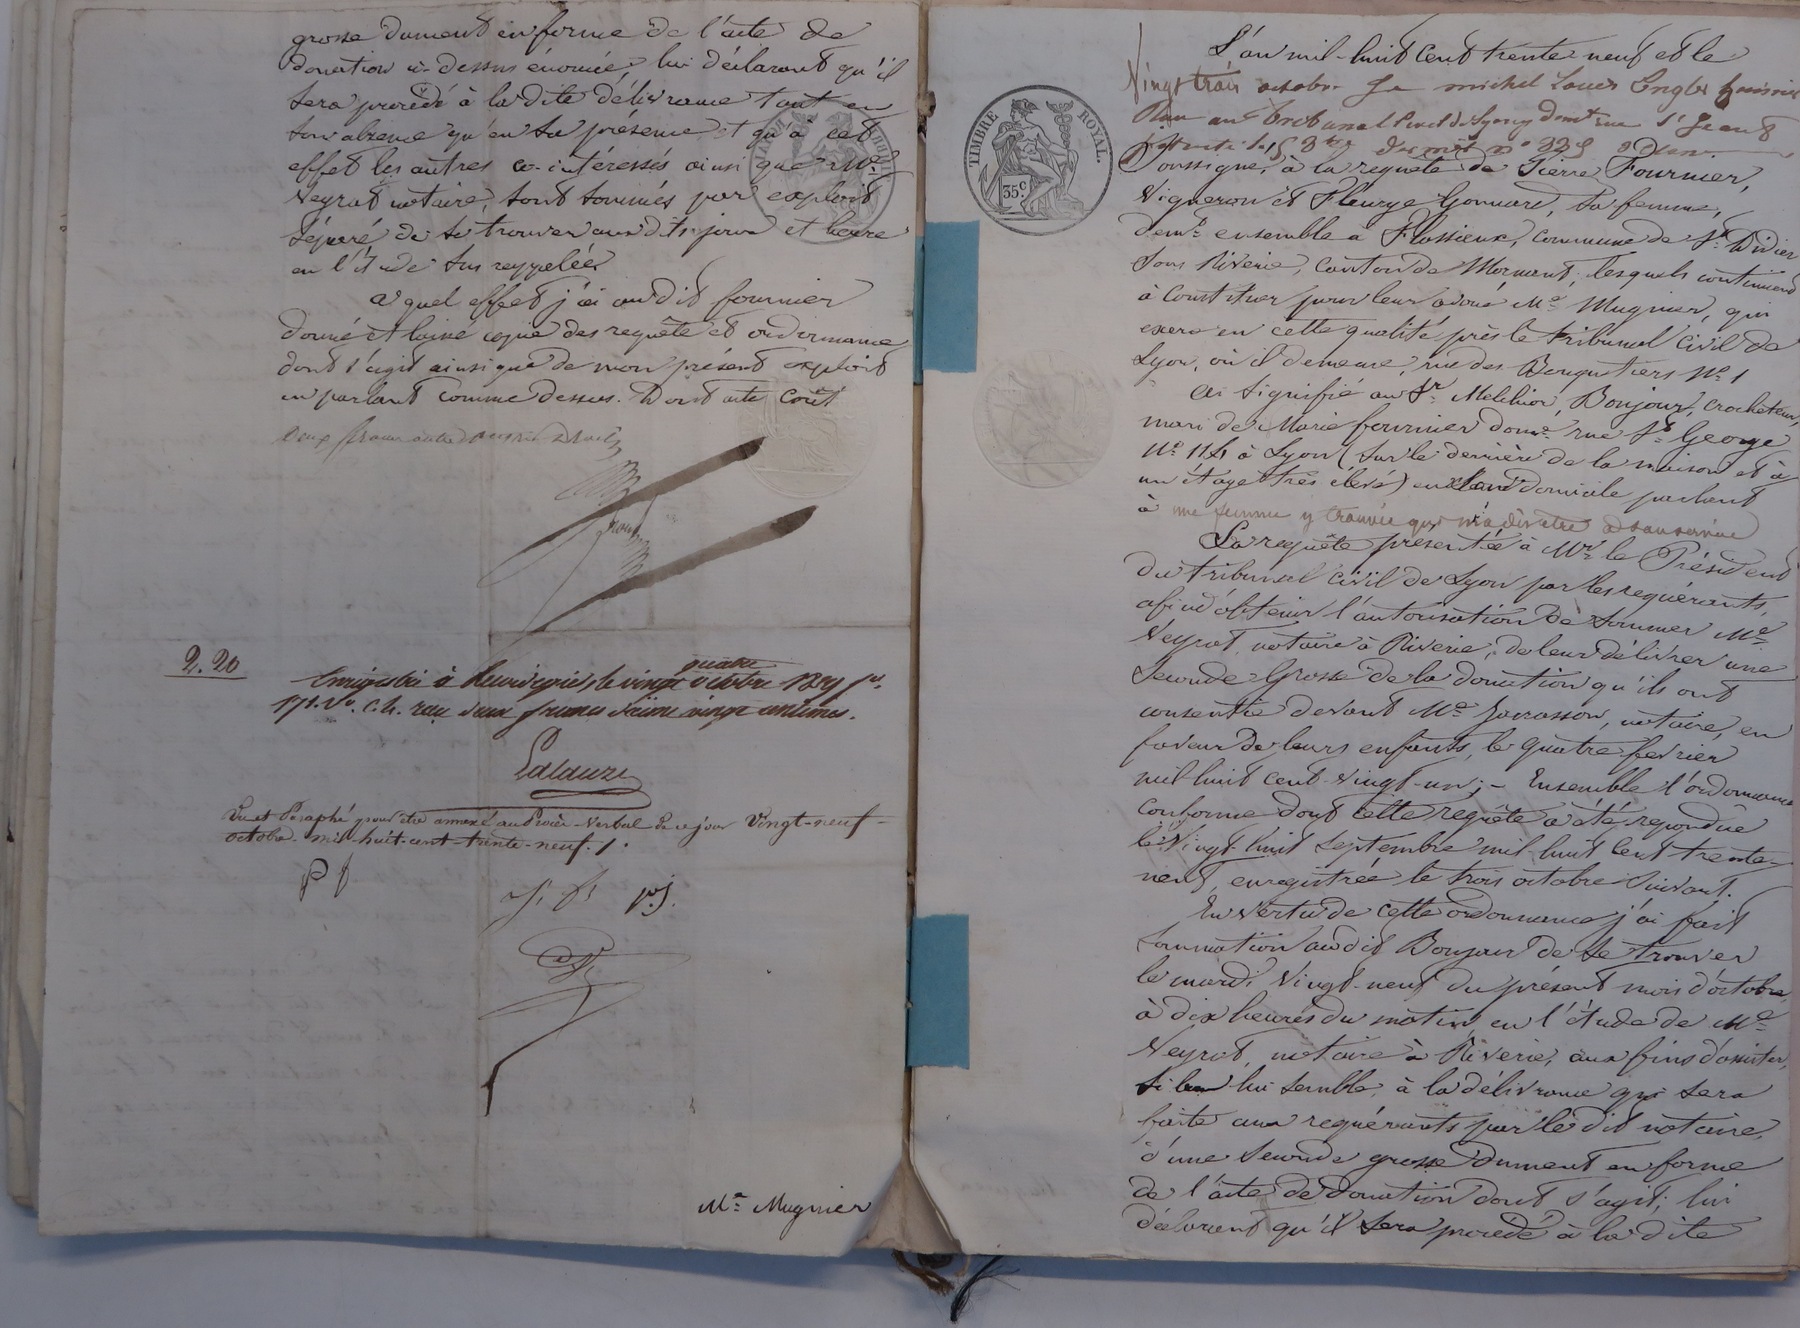 grosse dument en forme de l'acte de
donation ci-dessus énoncée, lui déclarant qu'il
sera procédé à la dite délivrance tant en
son absence qu'en sa présence et qu'à cet
effet les autres co-intéressés ainsi que Me
Neyrat notaire, sont sommés par exploit
séparé de se trouver aux dits jour et heure
en l'étude sus rappelée
A quel effet j'ai au dit fournier
donné et laissé copie des requête et ordonnance
dont s'agit ainsi que de mon présent exploit
en parlant comme dessus. Dont acte Coût
deux francs
2.20
quatre
Enregistré à le vingt octobre 1839 fo.
171. Vo. C. 4. reçu deux francs décime vingt centimes.
Lalauze
Vu et Paraphé pour être annexé au Procès-Verbal de ce jour Vingt-neuf
octobre mil-huit-cent-trente-neuf. /.
P f
J. f. p.J.
Me Mugnier
L'an mil-huit cent trente neuf et le
Vingt trois octobre Je michel Louis Engler huissier
au tribunal Civil de Lyon y demt rue St Jean
TIMBRE ROYAL.
35 c
Soussigné, à la requête de Pierre Fournier,
Vigneron et Fleurye Gonnard, sa femme,
demt ensemble à Flassieux, commune de St Didier
sous Riverie, Canton de Mornant, lesquels continuent
à Constituer pour leur avoué Me Mugnier, qui
exerce en cette qualité près le tribunal Civil de
Lyon, où il demeure, rue des Bouquetiers No 1
Ai Signifié au Sr Melchior Bonjour, crocheteur,
mari de Marie fournier domé rue St George
No 114 à Lyon (sur le derrière de la maison et à
un étage très élevé) en domicile parlant
à une femme y trouvée qui m'a dit être à son service
La requête présentée à Mr le Président
du tribunal Civil de Lyon par les requérants,
afin d'obtenir l'autorisation de sommer Me
Neyrat, notaire à Riverie, de leur délivrer une
Seconde Grosse de la donation qu'ils ont
consentie devant Me notaire, en
faveur de leurs enfants, le quatre fevrier
mil huit cent-vingt-un ; - Ensemble l'ordonnance
conforme dont cette requête a été répondue
le Vingt huit septembre mil huit cent trente-
neuf, enregistrée le trois octobre suivant.
En vertu de cette ordonnance j'ai fait
sommation au dit Bonjour de se trouver
le mardi Vingt-neuf du présent mois d'octobre
à dix heures du matin en l'étude de Me
Neyrat, notaire à Riverie, aux fins d'assister,
si bon lui semble, à la délivrance qui sera
faite aux requérants par le dit notaire,
d'une seconde grosse dument en forme
de l'acte de donation dont s'agit, lui
déclarant qu'il sera procédé à la dite